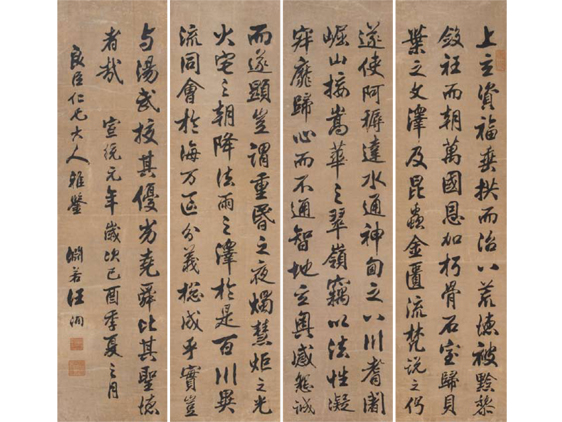 上主資福垂拱而治八荒德被黔黎
斂衽而朝萬國恩加朽骨石室歸貝
葉之文澤及昆蟲金匱流梵說之偈
遂使阿耨達水通神甸之八川耆闍
崛山接嵩華之翠嶺竊以法性凝
寂靡歸心而不通智地玄奧感懇誠
而遂顯豈謂重昏之夜燭慧炬之光
火宅之朝降法雨之澤於是百川異
流同會於海萬區分義總成乎實豈
与湯武校其優劣堯舜比其聖德
者哉 宣統元年歲次己酉季夏之月
良臣仁兄大人雅鑒 淵若汪洵